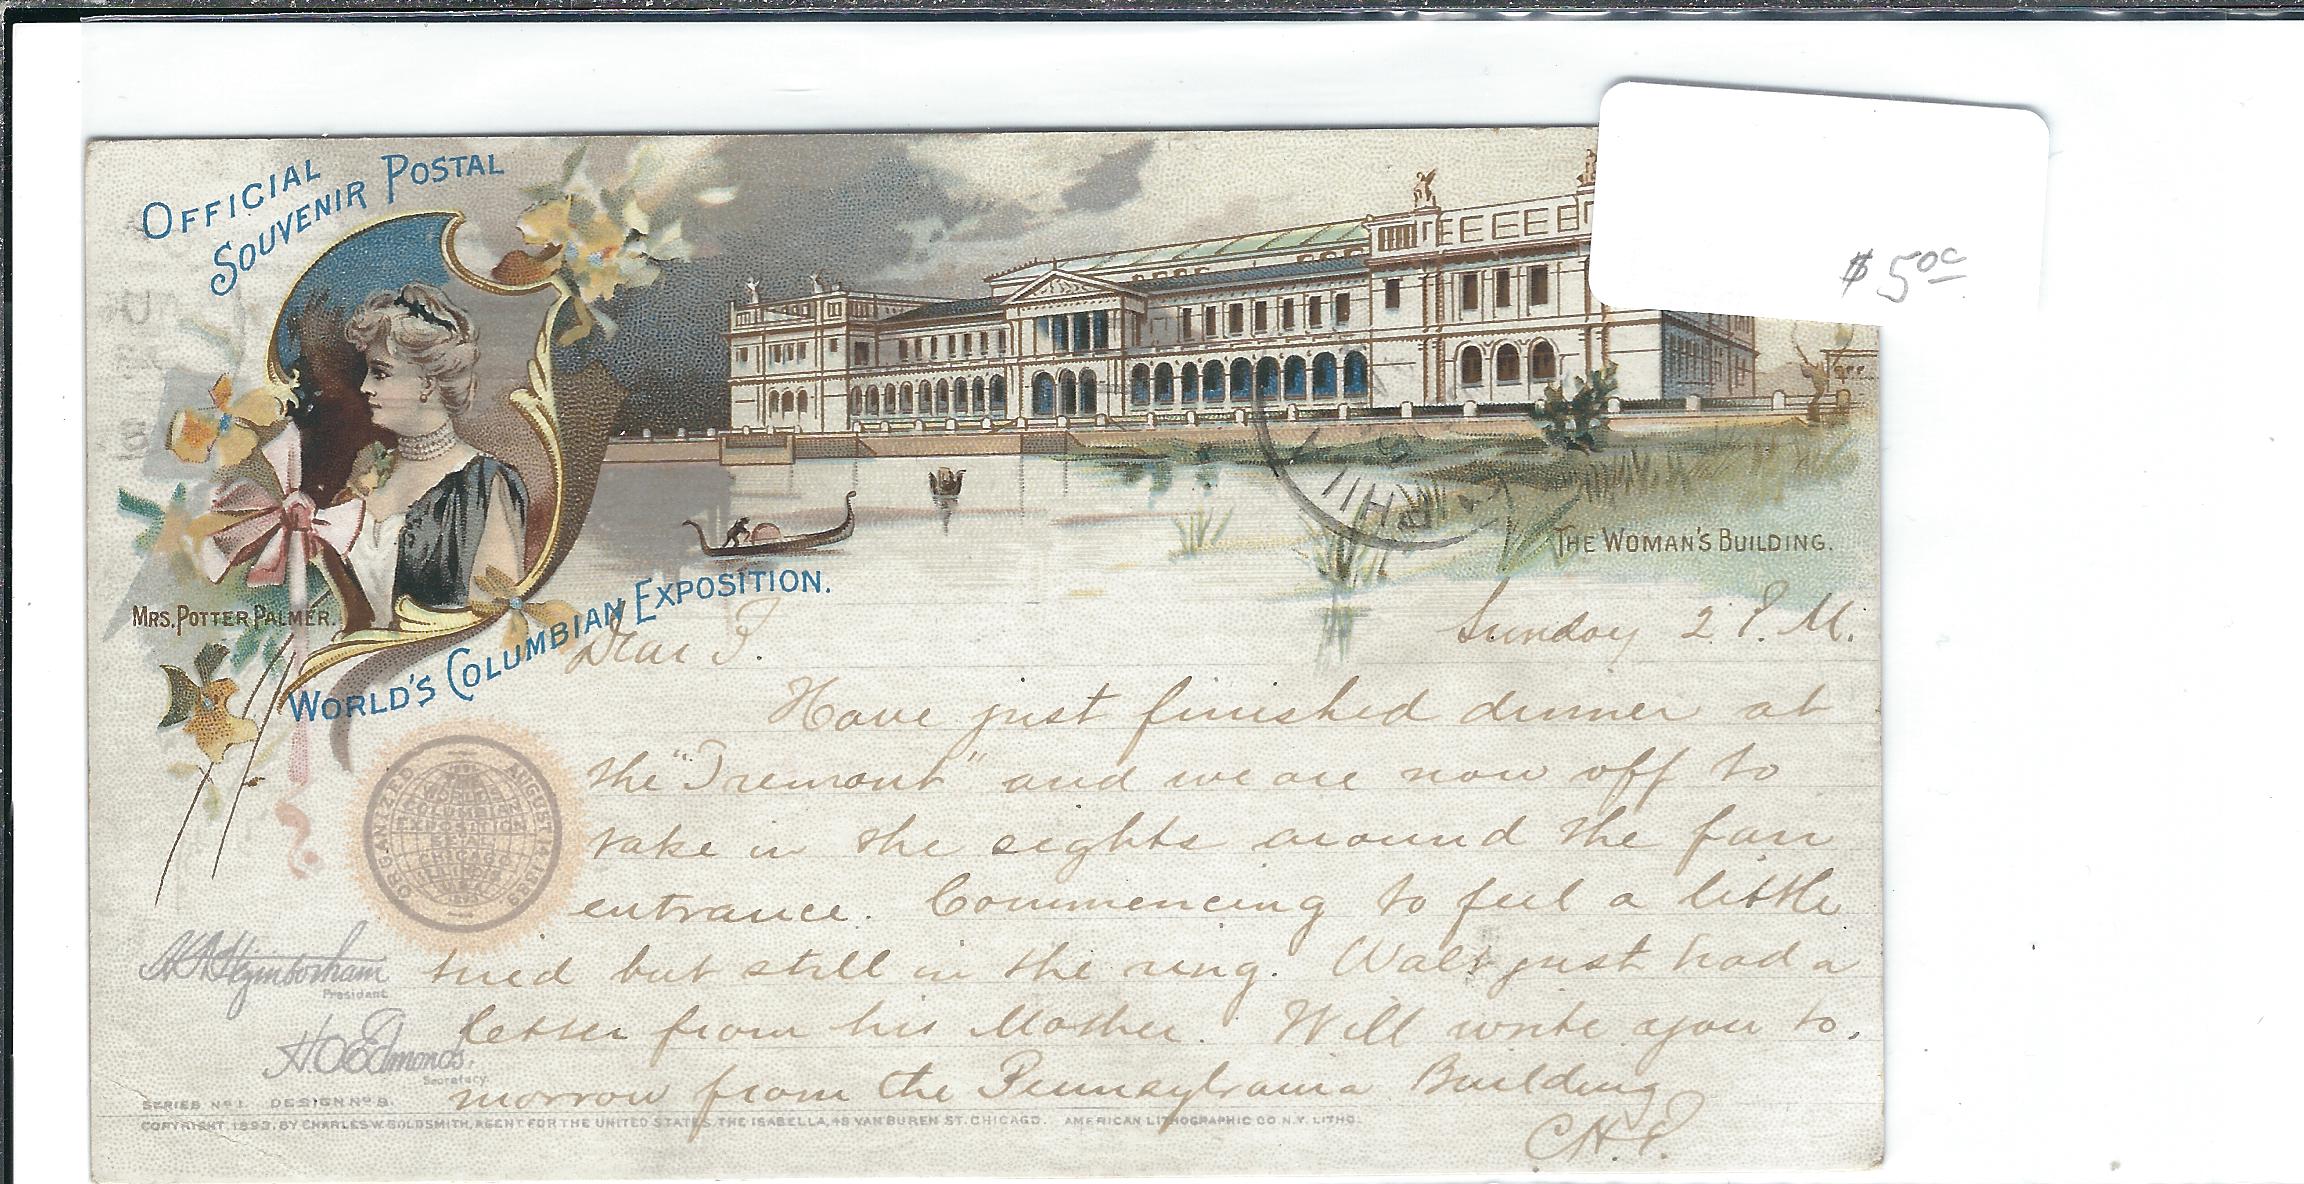 OFFICIAL
SOUVENIR POSTAL
$5.00
THE WOMAN'S BUILDING.
MRS. POTTER PALMER.
WORLD'S COLUMBIAN EXPOSITION.
Sunday 2 P.M.
Dear F.
Have just finished dinner at
the "Tremont" and we are now off to
take in the sights around the fair
entrance. Commencing to feel a little
tired but still in the ring. Walt just had a
letter from his Mother. Will write you to.
morrow from the Pennsylvania Building
C.H.P.
ORGANIZED AUGUST
WORLD'S
COLUMBIAN
EXPOSITION
CHICAGO
ILLINOIS
U.S.A.
H.N. Higinbotham
President
H.O. Edmonds.
Secretary.
SERIES No 1. DESIGN No 8.
COPYRIGHT, 1893, BY CHARLES W. GOLDSMITH, AGENT FOR THE UNITED STATES, THE ISABELLA, 48 VAN BUREN ST. CHICAGO. AMERICAN LITHOGRAPHIC CO. N.Y. LITHO.